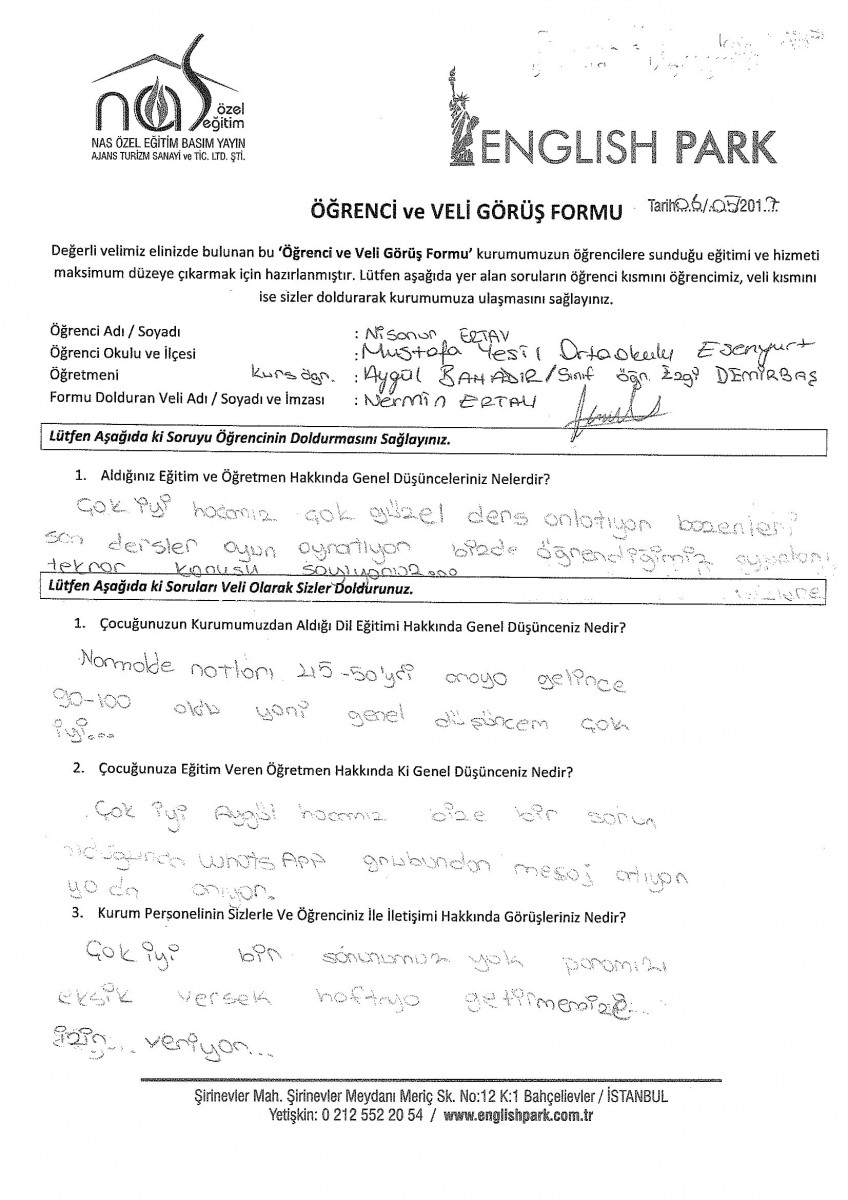 nas özel eğitim
NAS ÖZEL EĞİTİM BASIM YAYIN
AJANS TURİZM SANAYİ ve TİC. LTD. ŞTİ.
ENGLISH PARK
ÖĞRENCİ ve VELİ GÖRÜŞ FORMU Tarih 06/05/2017
Değerli velimiz elinizde bulunan bu 'Öğrenci ve Veli Görüş Formu' kurumumuzun öğrencilere sunduğu eğitimi ve hizmeti
maksimum düzeye çıkarmak için hazırlanmıştır. Lütfen aşağıda yer alan soruların öğrenci kısmını öğrencimiz, veli kısmını
ise sizler doldurarak kurumumuza ulaşmasını sağlayınız.
Öğrenci Adı / Soyadı : Nisanur ERTAV
Öğrenci Okulu ve İlçesi : Mustafa Yeşil Ortaokulu Esenyurt
Öğretmeni kurs öğn. : Aygül BAHADIR / Sınıf öğn. Ezgi DEMİRBAŞ
Formu Dolduran Veli Adı / Soyadı ve İmzası : Nermin ERTAV
Lütfen Aşağıda ki Soruyu Öğrencinin Doldurmasını Sağlayınız.
1. Aldığınız Eğitim ve Öğretmen Hakkında Genel Düşünceleriniz Nelerdir?
Çok iyi hocamız çok güzel ders anlatıyor bazenleri
son dersler oyun oynatıyor bizde öğrendiğimiz
tekrar konusu
Lütfen Aşağıda ki Soruları Veli Olarak Sizler Doldurunuz.
1. Çocuğunuzun Kurumumuzdan Aldığı Dil Eğitimi Hakkında Genel Düşünceniz Nedir?
Normalde notları 45-50'ydi oraya gelince
90-100 oldu yani genel düşüncem çok
iyi...
2. Çocuğunuza Eğitim Veren Öğretmen Hakkında Ki Genel Düşünceniz Nedir?
Çok iyi Aygül hocamız bize bir sorun
olduğunda WhatsApp grubundan mesaj atıyor
ya da arıyor.
3. Kurum Personelinin Sizlerle Ve Öğrenciniz İle İletişimi Hakkında Görüşleriniz Nedir?
Çok iyi bir sorunumuz yok paramızı
eksik versek haftaya getirmemize...
izin... veriyor...
Şirinevler Mah. Şirinevler Meydanı Meriç Sk. No:12 K:1 Bahçelievler / İSTANBUL
Yetişkin: 0 212 552 20 54 / www.englishpark.com.tr